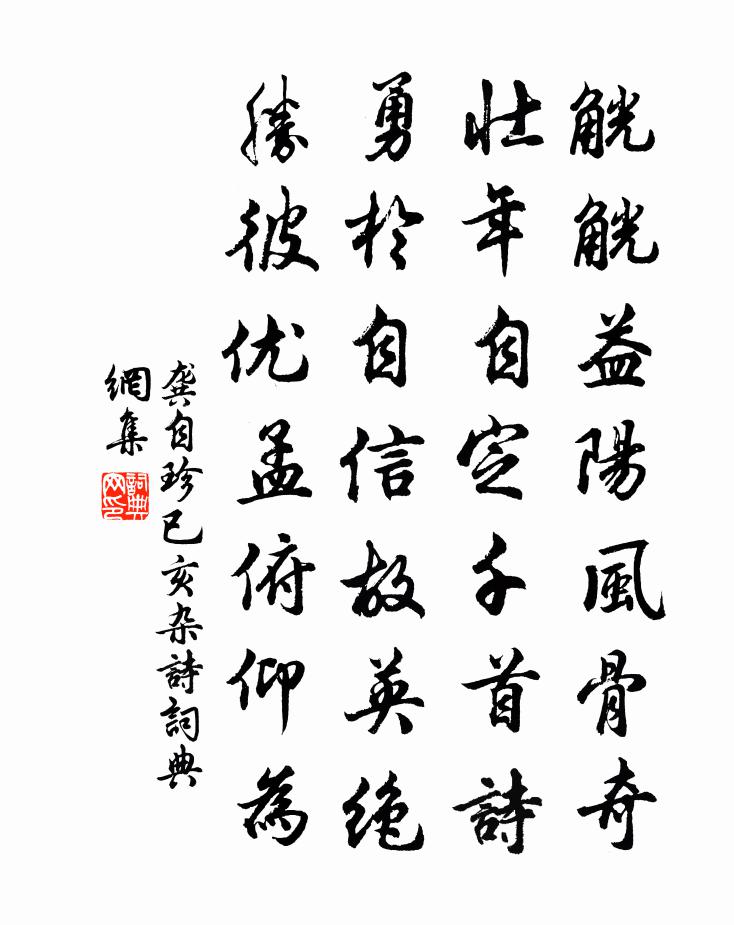 觥觥益陽風骨奇
壯年自定千首詩
勇於自信故英絕
勝彼优孟俯仰為
龚自珍己亥杂詩詞典
網集
詞典网印